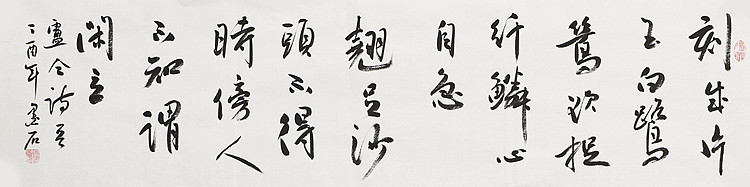 刻成片
玉白鷺
鷥欲捉
纤鱗心
自急
翹足沙
頭不得
時傍人
不知謂
閑立
盧仝詩
丁酉年石